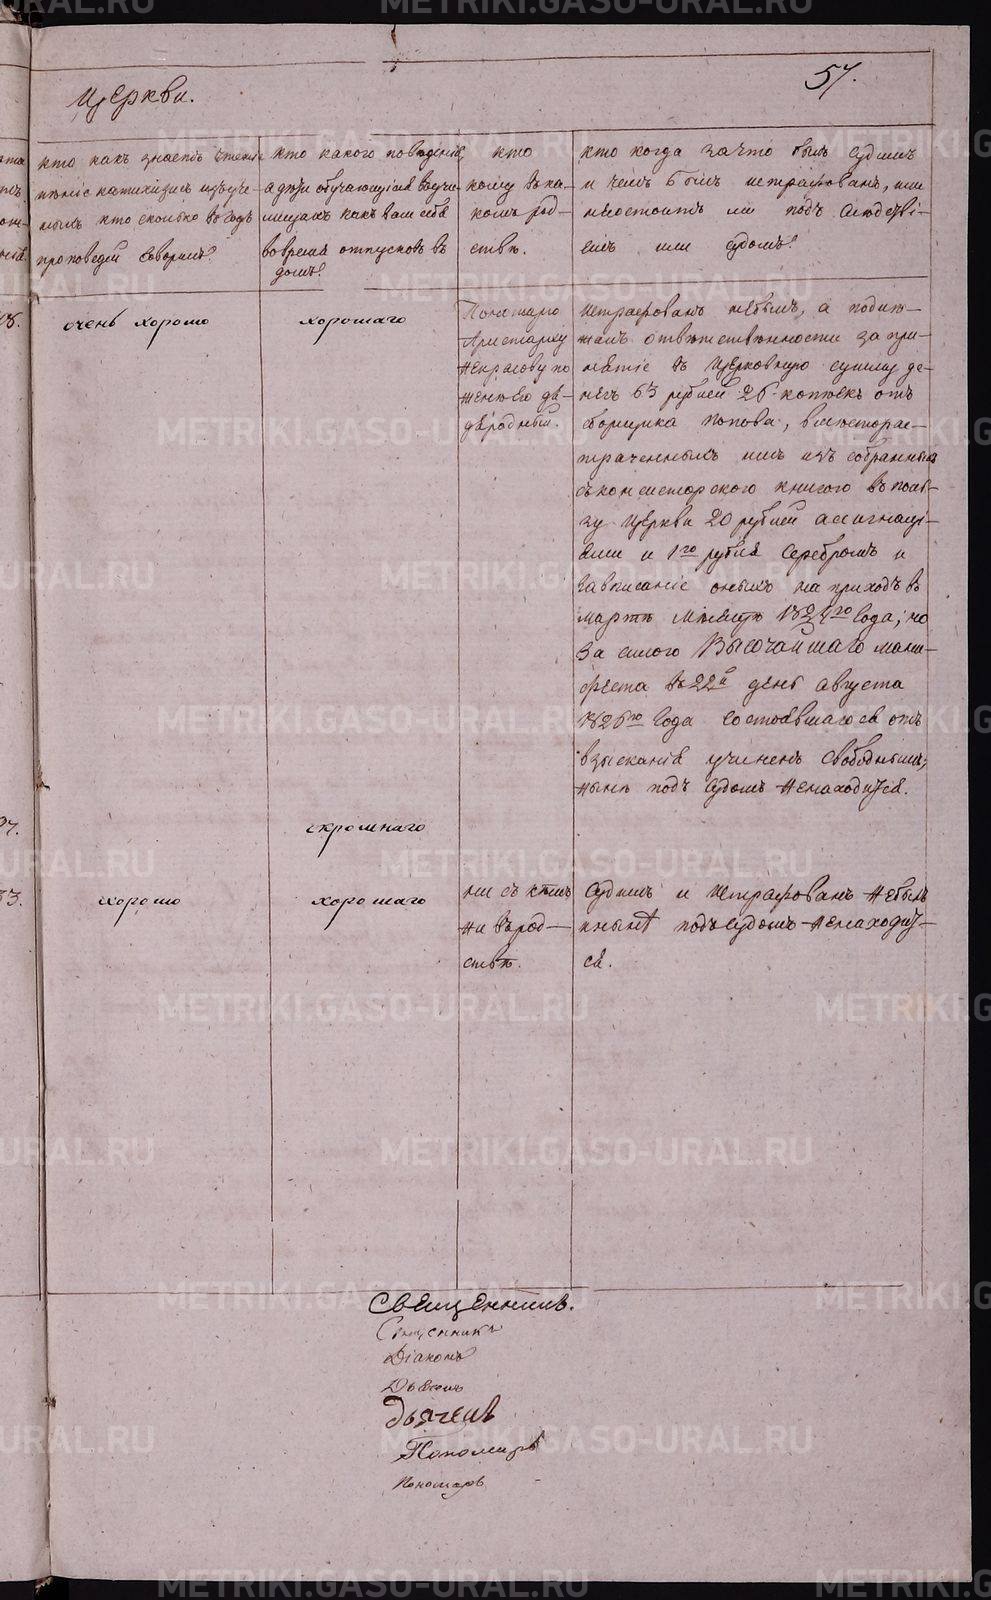 57.
Церкви.
кто какъ знаетъ чтеніе
пѣніе катихизисъ изъуче-
нныхъ кто сколько въ годъ
проповедей говорилъ
кто какого поведенія
а дѣти обучающіяся в учи-
лищахъ какъ вели себя
во время отпусковъ въ
домъ
кто
кому въ ка-
комъ род-
ствѣ.
кто когда за что былъ судимъ
и чемъ былъ штрафованъ, или
не состоитъ ли подъ слѣдстві-
емъ или судомъ
18.
очень хорошо
хорошаго
Пономарю
Аристарху
Некрасову по
женѣ его дя-
дя родный.
Штрафованъ не былъ, а подле-
жалъ отвѣтственности за при-
нятіе въ церковную сумму де-
негъ 63 рублей 26 копѣекъ отъ
сборщика Попова, вмѣсто рас-
траченныхъ имъ изъ собранныхъ
съ консисторского книгою въ поль-
зу церкви 20 рублей ассигнаці-
ями и 1го рубля серебромъ и
за вписаніе оныхъ на приходъ въ
мартѣ мѣсяцѣ 1824го года; но
за силою Высочайшаго мани-
феста въ 22й день августа
1826го года состоявшагося отъ
взысканія учиненъ свободнымъ;
нынѣ подъ судомъ не находится.
скромнаго
33.
хорошо
хорошаго
ни съ кѣмъ
не въ род-
ствѣ.
Судимъ и штрафованъ не былъ
и нынѣ подъ судомъ не находит-
ся.
Священникъ.
Священникъ
Діаконъ
Дьячекъ
Дьячекъ
Пономарь
Пономарь
METRIKI.GASO-URAL.RU